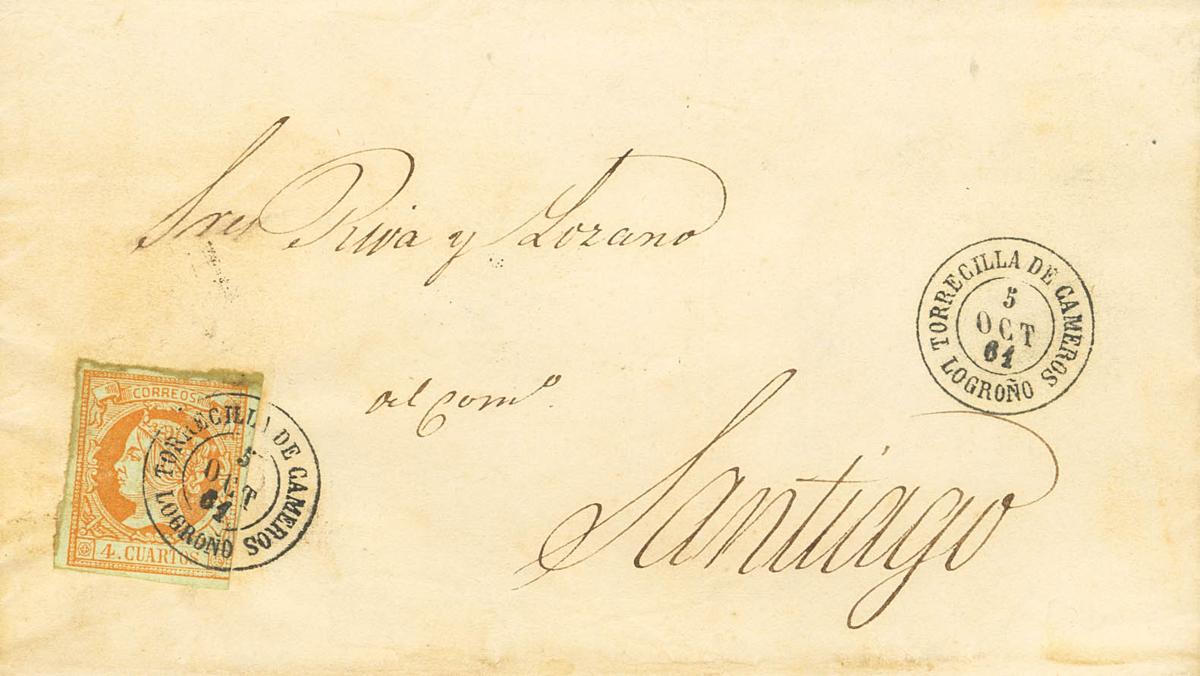 Sres Riva y Lozano
del comº.
Santiago
TORRECILLA DE CAMEROS
5
OCT
61
LOGROÑO
CORREOS
4. CUARTOS
TORRECILLA DE CAMEROS
5
OCT
61
LOGROÑO